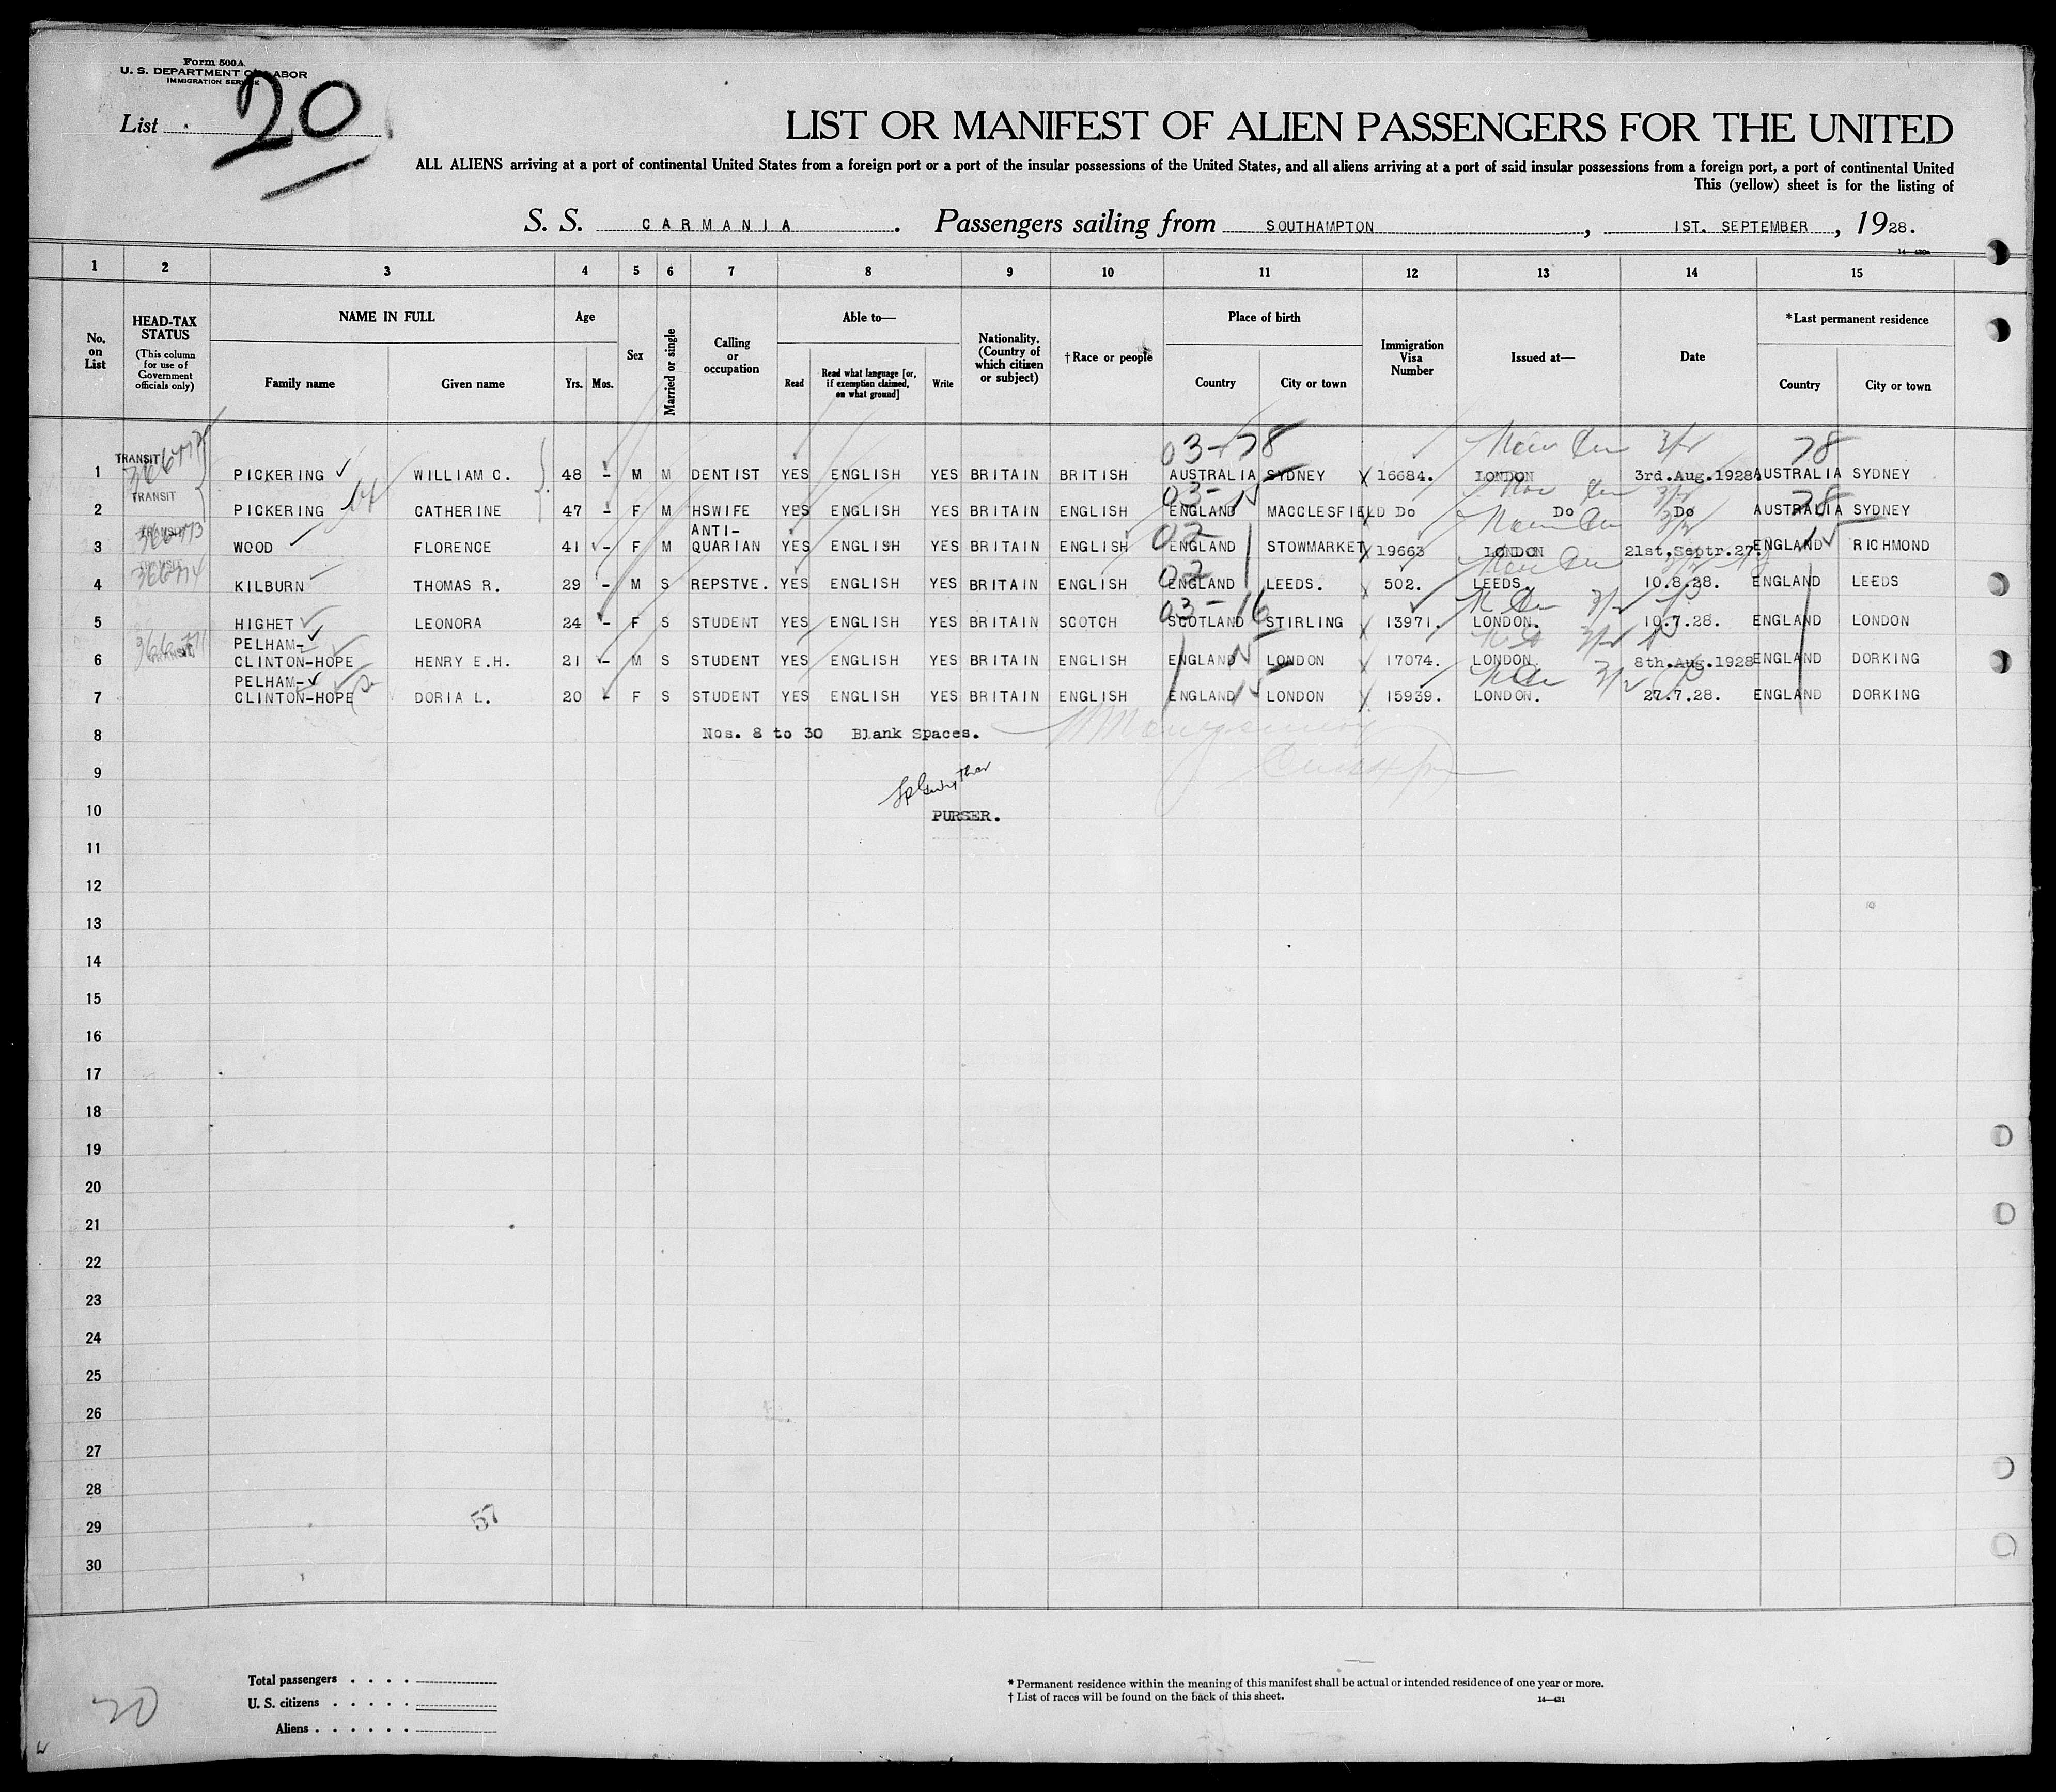 Form 500A
U. S. DEPARTMENT OF LABOR
IMMIGRATION SERVICE
List 20
LIST OR MANIFEST OF ALIEN PASSENGERS FOR THE UNITED
ALL ALIENS arriving at a port of continental United States from a foreign port or a port of the insular possessions of the United States, and all aliens arriving at a port of said insular possessions from a foreign port, a port of continental United
This (yellow) sheet is for the listing of
S. S. CARMANIA. Passengers sailing from SOUTHAMPTON, 1ST. SEPTEMBER, 1928.
14—430a
1 2 3 4 5 6 7 8 9 10 11 12 13 14 15
No. on List
HEAD-TAX STATUS (This column for use of Government officials only)
NAME IN FULL
Family name
Given name
Age
Yrs. Mos.
Sex
Married or single
Calling or occupation
Able to—
Read
Read what language [or, if exemption claimed, on what ground]
Write
Nationality. (Country of which citizen or subject)
†Race or people
Place of birth
Country
City or town
Immigration Visa Number
Issued at—
Date
*Last permanent residence
Country
City or town
03-78 78
1 TRANSIT PICKERING WILLIAM C. 48 - M M DENTIST YES ENGLISH YES BRITAIN BRITISH AUSTRALIA SYDNEY 16684. LONDON 3rd.Aug.1928. AUSTRALIA SYDNEY
2 TRANSIT PICKERING CATHERINE 47 - F M HSWIFE YES ENGLISH YES BRITAIN ENGLISH ENGLAND MACCLESFIELD Do Do Do AUSTRALIA SYDNEY
3 TRANSIT WOOD FLORENCE 41 - F M ANTI-QUARIAN YES ENGLISH YES BRITAIN ENGLISH ENGLAND STOWMARKET 19663 LONDON 21st,Septr.27 ENGLAND RICHMOND
4 TRANSIT KILBURN THOMAS R. 29 - M S REPSTVE. YES ENGLISH YES BRITAIN ENGLISH ENGLAND LEEDS. 502. LEEDS. 10.8.28. ENGLAND LEEDS
03-16
5 HIGHET LEONORA 24 - F S STUDENT YES ENGLISH YES BRITAIN SCOTCH SCOTLAND STIRLING 13971. LONDON. 10.7.28. ENGLAND LONDON
6 TRANSIT PELHAM-CLINTON-HOPE HENRY E.H. 21 - M S STUDENT YES ENGLISH YES BRITAIN ENGLISH ENGLAND LONDON 17074. LONDON. 8th.Aug.1928 ENGLAND DORKING
7 PELHAM-CLINTON-HOPE DORIA L. 20 - F S STUDENT YES ENGLISH YES BRITAIN ENGLISH ENGLAND LONDON 15939. LONDON. 27.7.28. ENGLAND DORKING
8 Nos. 8 to 30 Blank Spaces.
9
10 PURSER.
11
12
13
14
15
16
17
18
19
20
21
22
23
24
25
26
27
28
29 57
30
Total passengers . . . .
U. S. citizens . . . . .
Aliens . . . . . .
* Permanent residence within the meaning of this manifest shall be actual or intended residence of one year or more.
† List of races will be found on the back of this sheet.
14—431
20